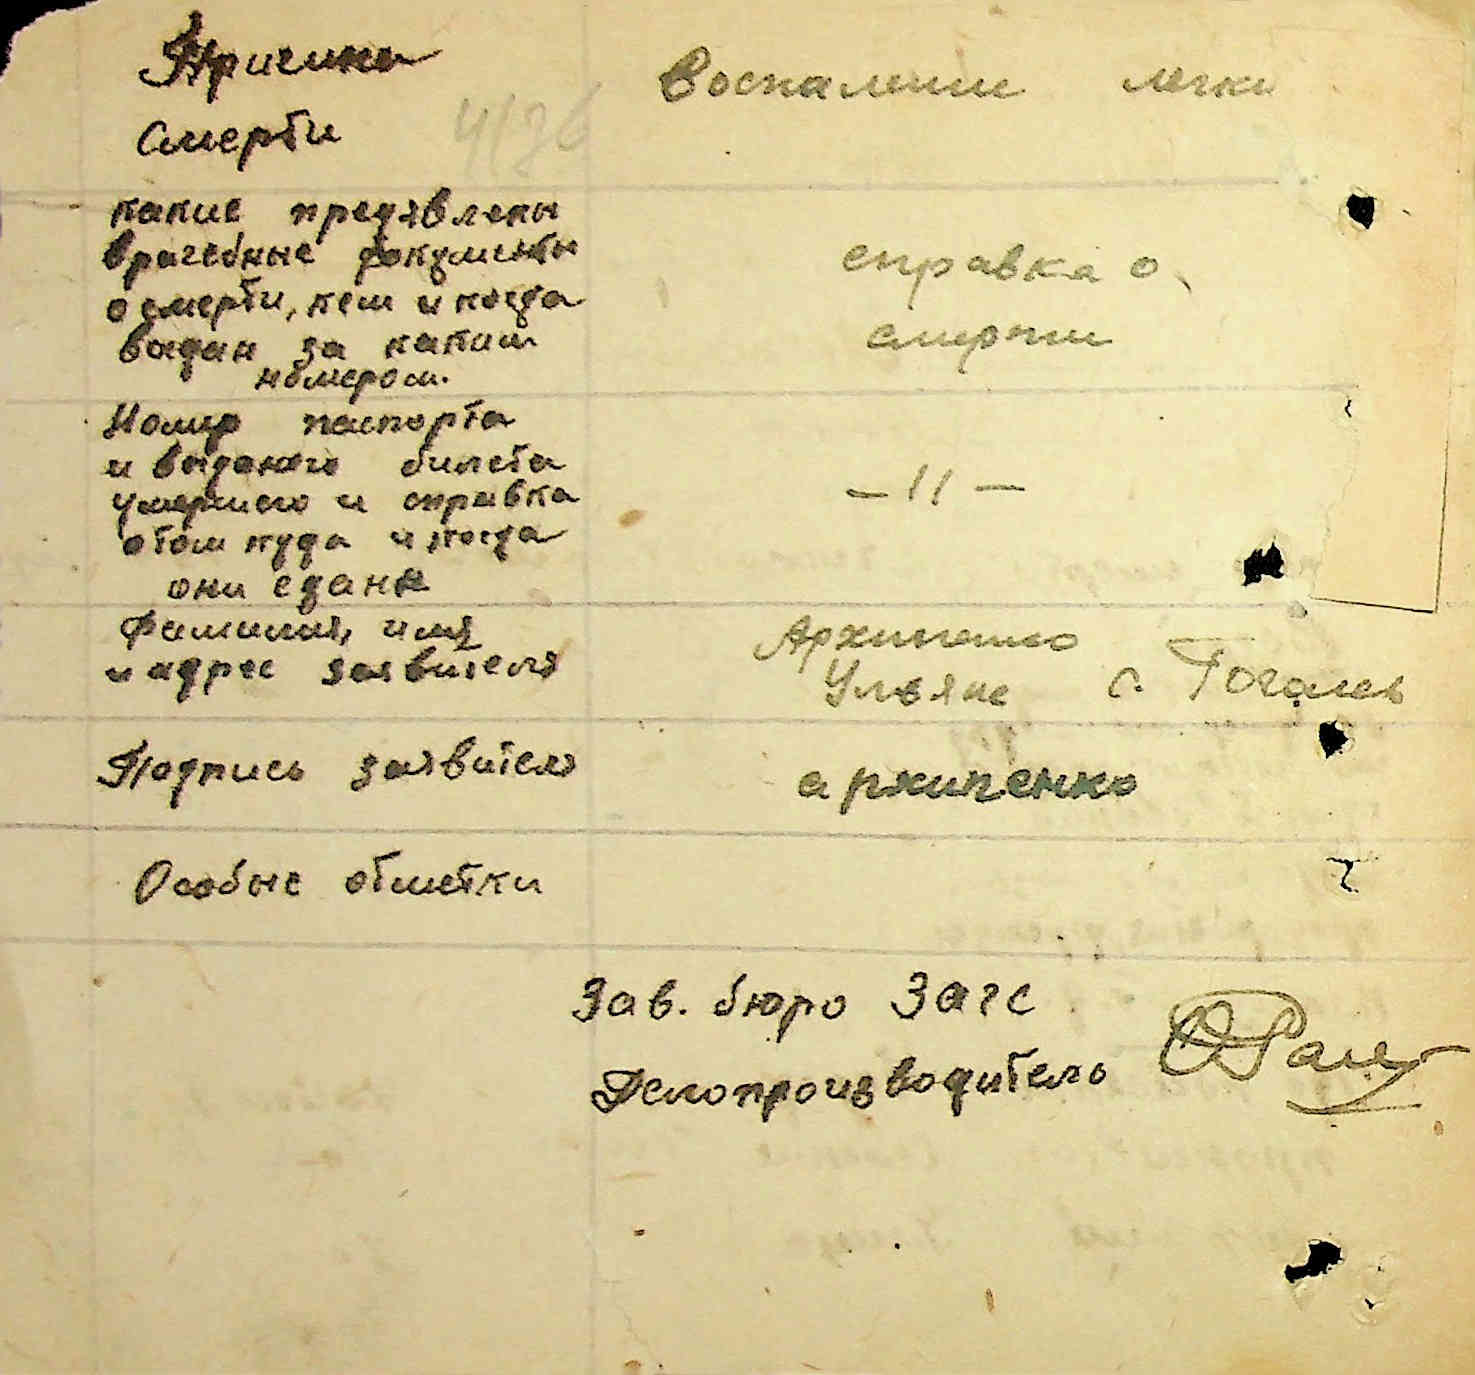 Причина
Смерти
Воспаление легки
какие предявлены
врачебные документы
о смерти, кем и когда
выдан за каким
номером.
справка о
смерти
Номир паспорта
и воданого билета
умершего и справка
отом куда и когда
они сданы
— 11 —
Фамилия, имя
и адрес заявителя
Архипенко
Ульяне с. Гоголев
Подпись заявителя
архипенко
Особые отметки
Зав. бюро Загс
Делопроизводитель